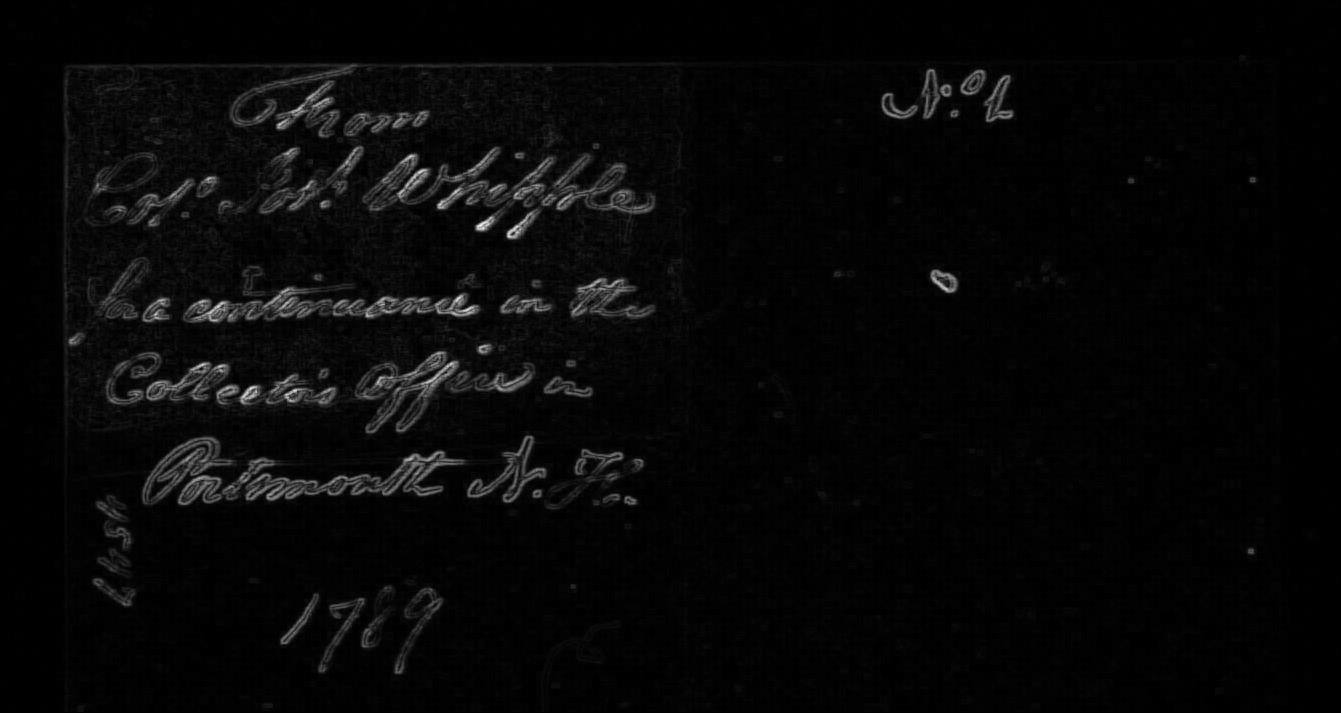 From
Col.º Jos.h Whipple
for a continuance in the
Collector's Office in
Portsmouth N. H.
1789
N.º 1